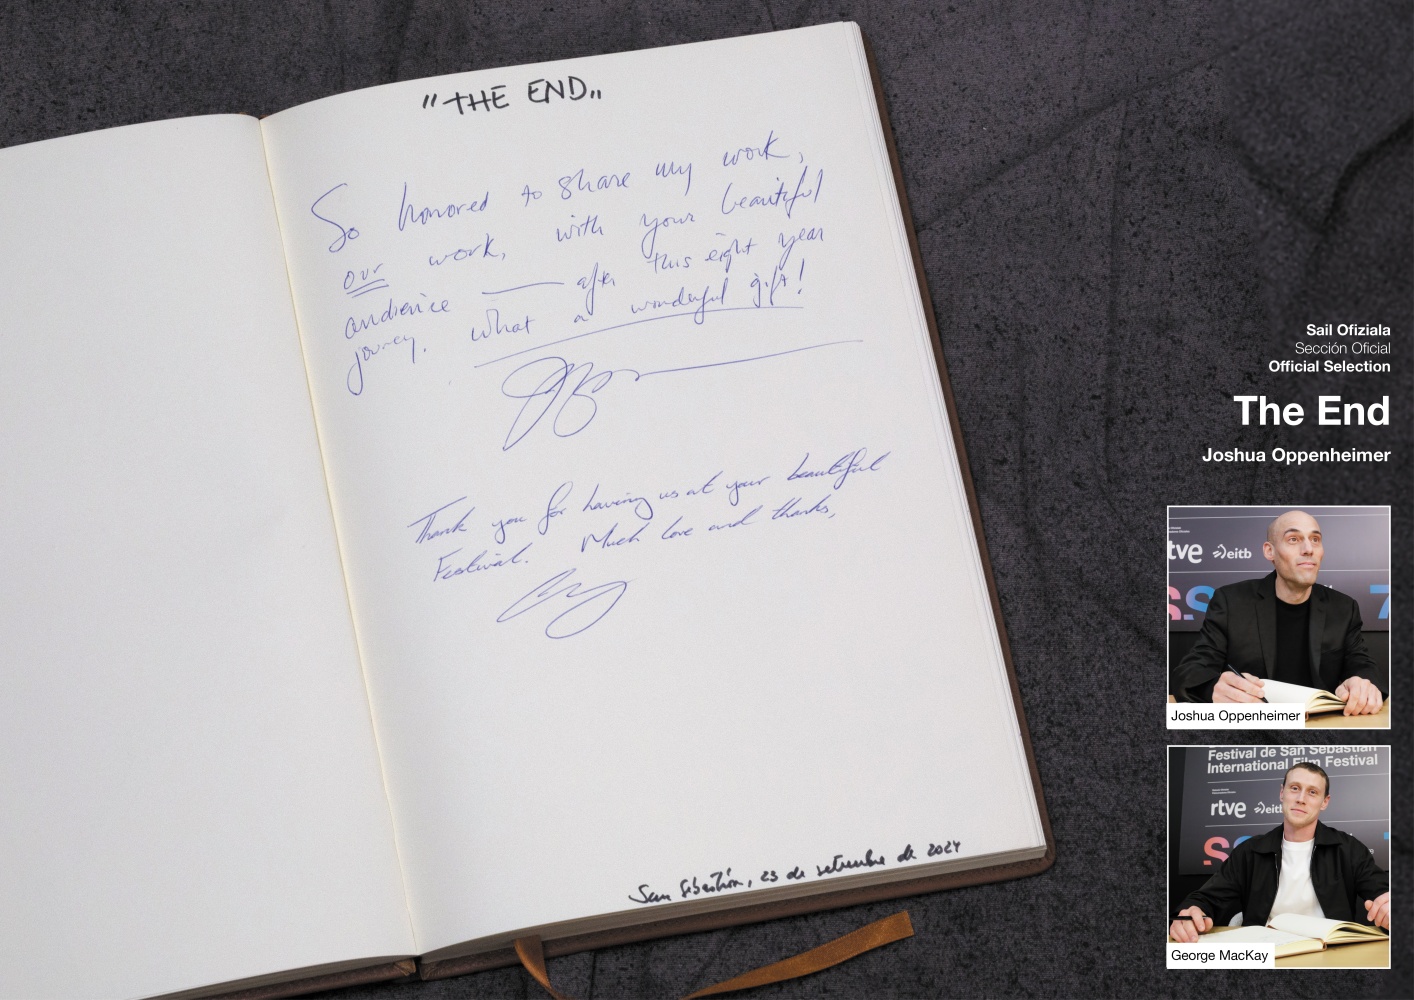 "THE END"
So honored to share my work,
our work, with your beautiful
audience — after this eight year
journey. What a wonderful gift!
Thank you for having us at your beautiful
Festival. Much love and thanks,
San Sebastián, 23 de setiembre de 2024
Sail Ofiziala
Sección Oficial
Official Selection
The End
Joshua Oppenheimer
tve eitb
SS 7
Joshua Oppenheimer
Festival de San Sebastián
International Film Festival
rtve eitb
SS 7
George MacKay